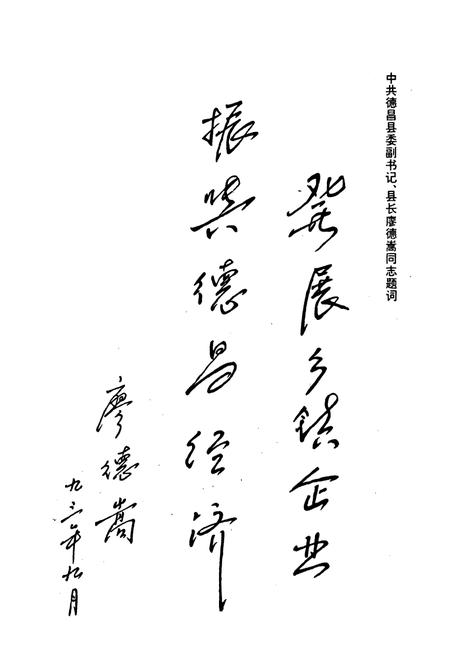 中共德昌县委副书记、县长廖德嵩同志题词
发展乡镇企业
振兴德昌经济
廖德嵩
九三年九月